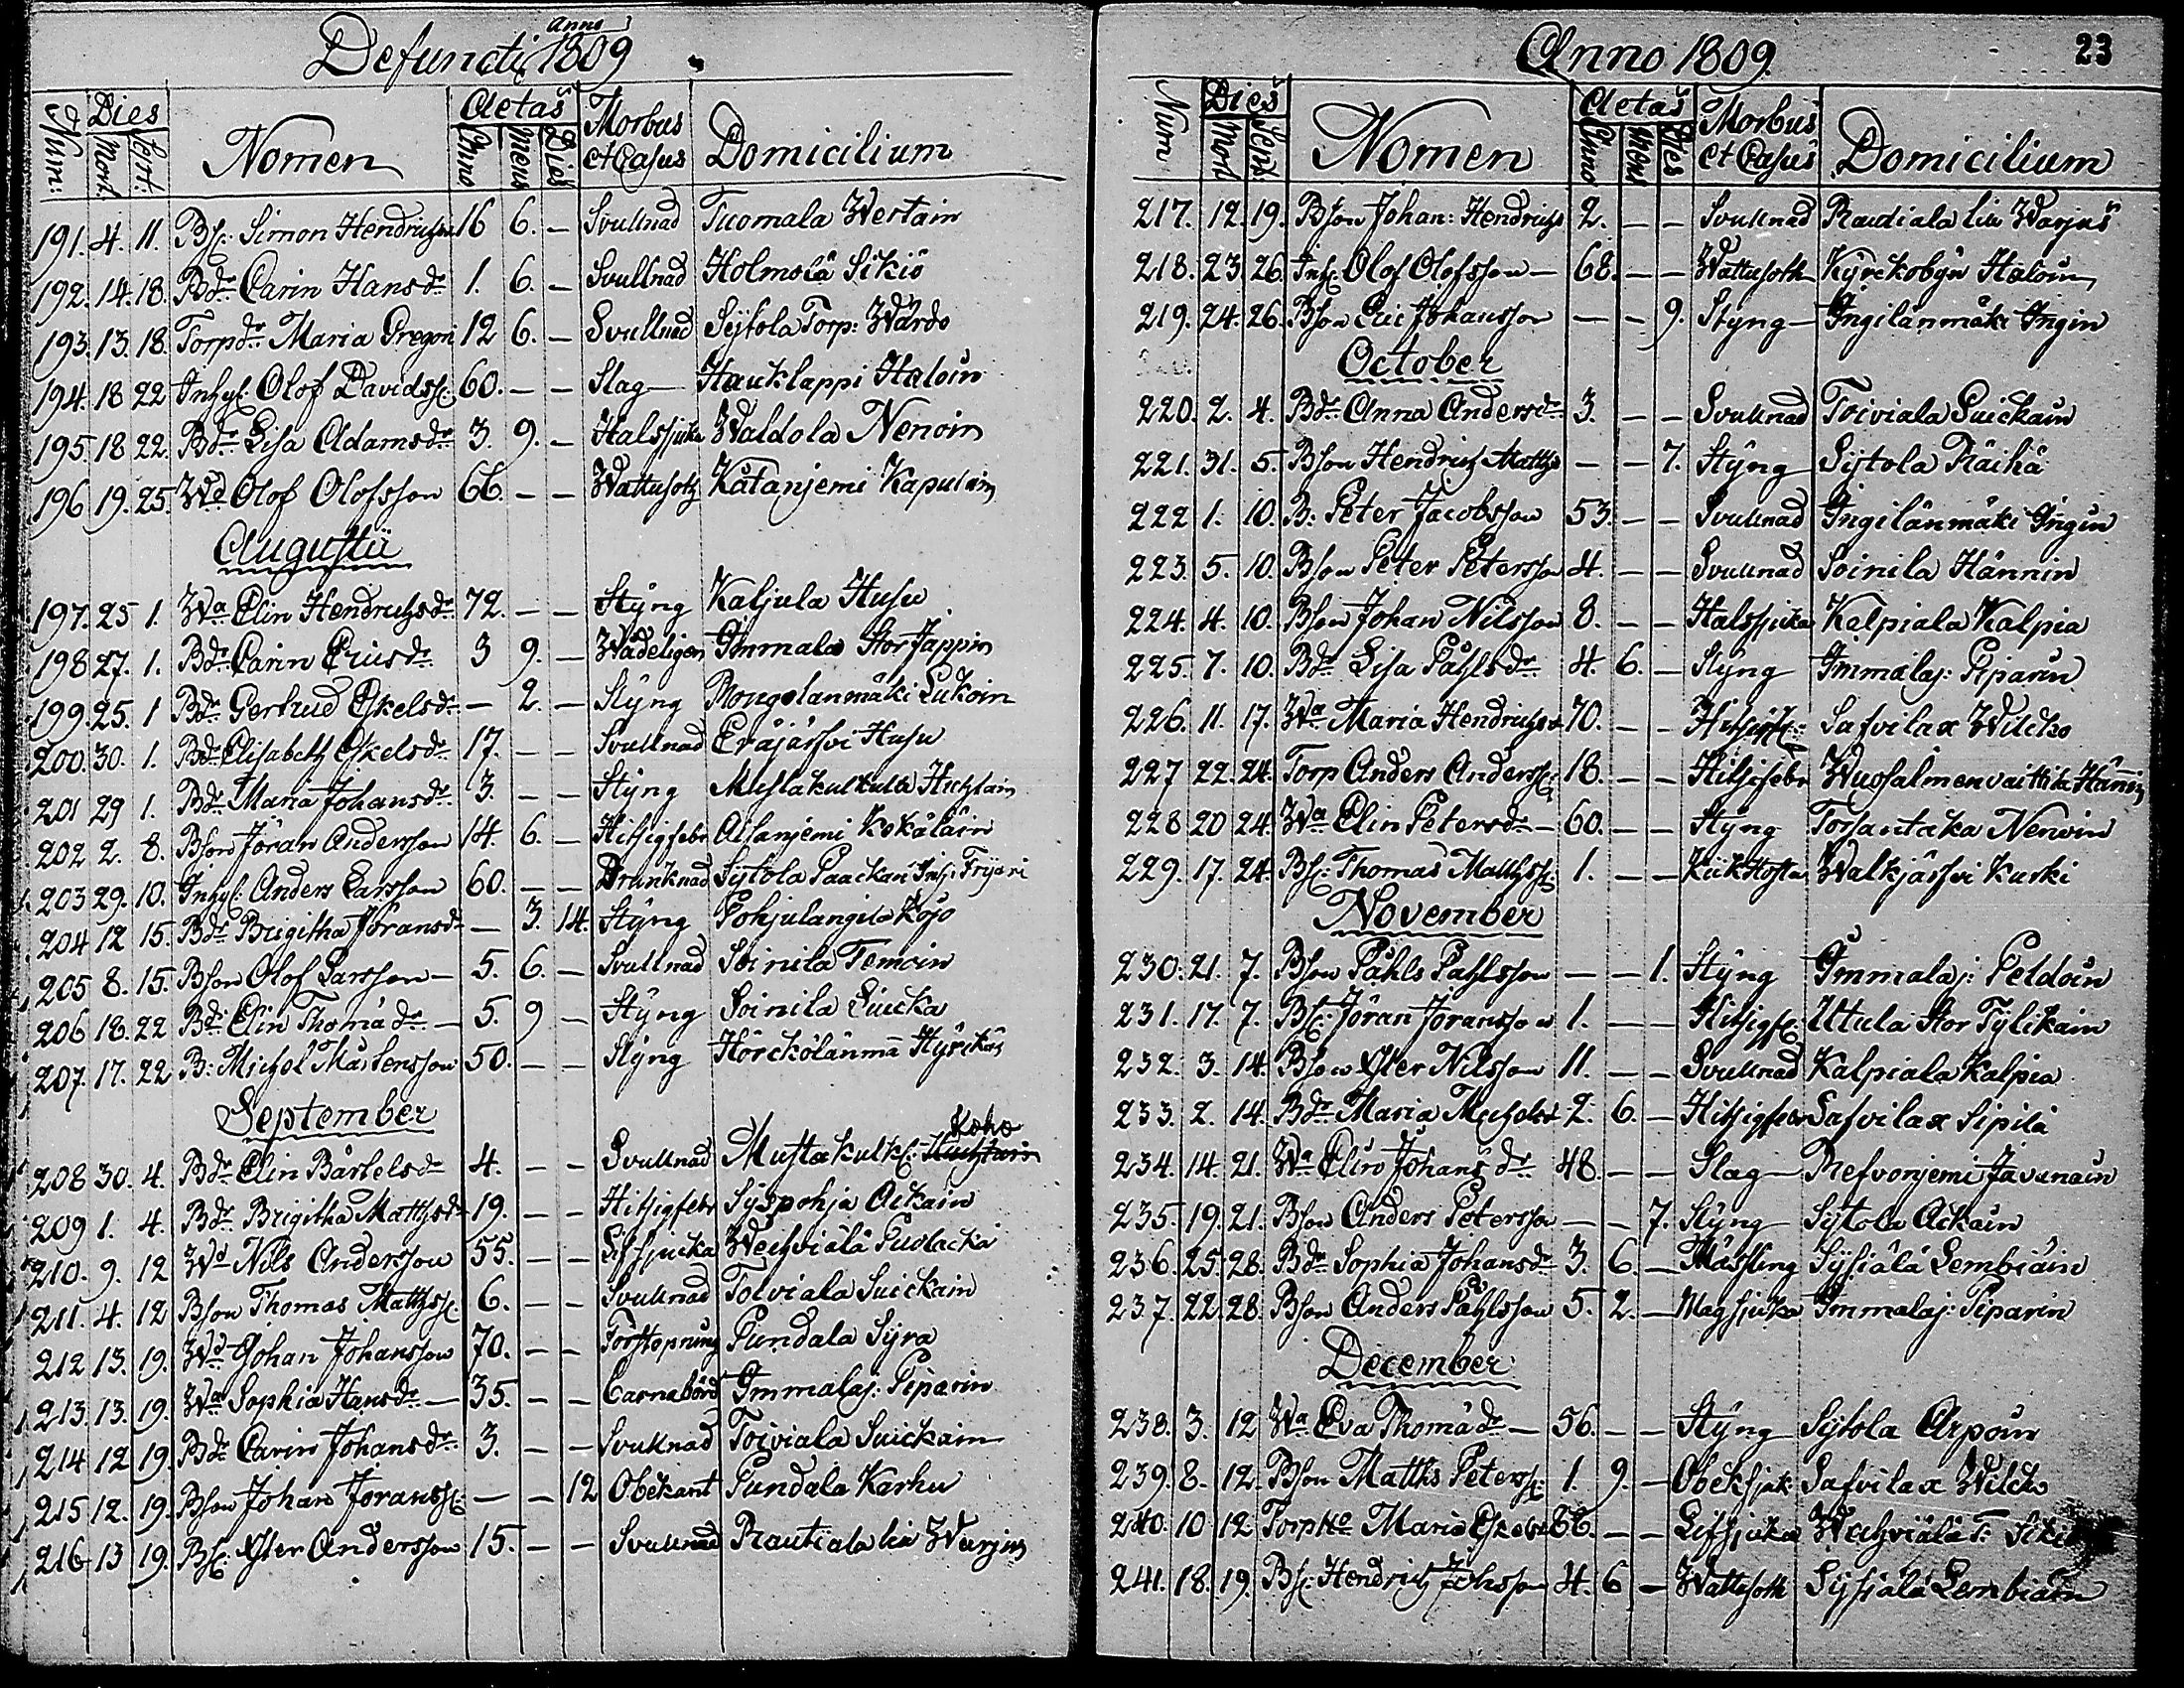 Defuncti Anno 1809
Num: Dies Mort. Sept. Nomen Aetas Anno Mens Dies Morbus et Casus Domicilium
191. 4. 11. Bs: Simon Hendrichson 16 6. — Svullnad Tuomala Wertain
192. 14. 18. Bdr Carin Hansdr 1. 6. — Svullnad Holmola Sikiö
193. 13. 18. Torpdr Maria Gregori 12 6. — Svullnad Sijtola Torp: Wardo
194. 18 22 Inhys: Olof Davidss: 60. — — Slag — Hauklappi Haloin
195. 18 22. Bdr Lisa Adamsdr 3. 9. — Halssjuka Waldola Nenoin
196 19. 25. Wd Olof Olofsson 66. — — Wattusoth Kåtanjemi Kapulain
Augustii
197. 25 1. Wa Elin Hendrichsdr 72. — — Styng Kaljula Husu
198 27. 1. Bdr Carin Ericsdr 3 9. — Wådeligen Immala Stor Jappin
199. 25. 1 Bdr Gertrud Eskelsdr — 2. — Styng Mongolanmäki Lukoin
200. 30. 1. Bdr Elisabeth Eskelsdr 17. — — Svullnad Eräjärfvi Husu
201 29 1. Bdr Maria Johansdr 3. — — Styng Mustakulkula Huchtain
202 2. 8. Bson Jöran Andersson 14. 6. — Hitsigfebr Aisanjemi Kokäläin
203 29. 10. Inhys: Anders Larsson 60. — — Drunknad Sijtola Paackari Inh: Frijari
204 12 15. Bdr Brigitha Jöransdr — 3. 14. Styng Pohjulangila Kojo
205 8. 15. Bson Olof Larsson — 5. 6. — Svullnad Soinila Temoin
206 18. 22 Bdr Elin Thomadr — 5. 9 — Styng Soinila Luicka
207. 17. 22 B: Michel Mårtensson 50. — — Styng Hörckölänmä Hyrckäs
September
Koho
208 30. 4. Bdr Elin Bärtelsdr 4. — — Svullnad Mustakulk: Huchtain
209 1. 4. Bdr Brigitha Matthsdr 19. — — Hitsigfebr Syspohja Ackain
210. 9. 12 Wd Nils Andersson 55. — — Lifssjucka Wechviälä Puolacka
211. 4. 12 Bson Thomas Matthss: 6. — — Svullnad Toiviala Suickain
212 13. 19. Wd Johan Johansson 70. — — Förstopning Pundala Syra
213. 13. 19. Wa Sophia Hansdr — 35. — — Barnabörd Immalaj: Piparin
214 12 19. Bdr Carin Johansdr 3. — — Svullnad Toiviala Suickain
215 12. 19. Bson Johan Jöranss: — — 12 Obekant Pundala Karhu
216 13 19. Bs: Yster Andersson 15. — — Svullnad Rautiala lia Warjus
Anno 1809. 23
Num Dies Mort Sept: Nomen Aetas Anno Mens Dies Morbus et Casus Domicilium
217. 12. 19. Bson Johan: Hendrichs 2. — — Svullnad Raudiala lia Warjus
218. 23 26. Inhs: Olof Olofsson — 68. — — Wattusoth Kyrckobyn Haloin
219. 24. 26. Bson Eric Johansson — — 9. Styng — Ingilänmäki Ingin
October
220. 2. 4. Bdr Anna Andersdr 3. — — Svullnad Toiviala Suickain
221. 31. 5. Bson Hendrich Matths — — 7. Styng Sijtola Räihä
222 1. 10. B: Peter Jacobsson 53. — — Svullnad Ingilänmäki Ingin
223. 5. 10. Bson Peter Petersson 4. — — Svullnad Soinila Hännin
224. 4. 10. Bson Johan Nilsson 8. — — Halssjuka Kalpiala Kalpia
225. 7. 10. Bdr Lisa Påhlsdr 4. 6. — Styng Immalaj: Piparin
226. 11. 17. Wa Maria Hendrichsdr 70. — — Safvilax Wilcko
227 22. 24. Torp Anders Anderss: 18. — — Hitsigfebr Wuosalmen vaitti Hännin
228 20 24. Wa Elin Petersdr — 60. — — Styng Torsantaka Nenoin
229. 17. 24. Bs: Thomas Matthss: 1. — — Kikhosta Walkjärfvi Kurki
November
230. 21. 7. Bson Påhls Påhlsson — — 1. Styng Immalaj: Peldoin
231. 17. 7. Bs: Jöran Jöransson 1. — — Hitsigf: Utula Stor Tylikain
232. 3. 14. Bson Yster Nilsson 11. — — Svullnad Kalpiala Kalpia
233. 2. 14. Bdr Maria Michelsd 2. 6. — Hitsigfebr Safvilax Sipilä
234. 14. 21. Wa Elin Johansdr 48. — — Slag — Refvonjemi Javanain
235. 19. 21. Bson Anders Petersson — — 7. Styng Sijtola Ackain
236. 25. 28. Bdr Sophia Johansdr 3. 6. — Mässling Sysiälä Lembiäin
237. 22. 28. Bson Anders Påhlsson 5. 2. — Magsjuka Immalaj: Piparin
December
238. 3. 12 Wa Eva Thomädr — 56. — — Styng Sijtola Arpoin
239. 8. 12. Bson Matths Peterss: 1. 9. — Obeksjuk: Safvilax Wilcko
240. 10 12 Torpko Maria Eskelsd 86. — — Lifsjuka Wechviälä T:
241. 18. 19. Bs: Hendrich Johsson 4. 6 — Wattusoth Sysiälä Lembiäin